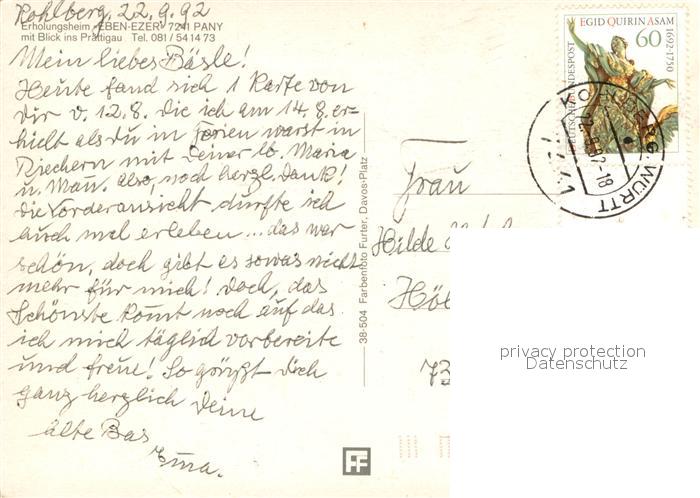 Kohlberg, 22.9.92
Erholungsheim "EBEN-EZER" 7241 PANY
mit Blick ins Prättigau Tel. 081 / 54 14 73
Mein liebes Bäsle!
Heute fand sich 1 Karte von
Dir v. 12.8. die ich am 14.8. er-
hielt als du in Ferien warst in
Riechern mit Deiner lb. Maria
u. Man. also, noch herzl. Dank!
die Vorderansicht durfte ich
auch mal erleben... das war
schön, doch gibt es sowas nicht
mehr für mich! Doch, das
Schönste komt noch auf das
ich mich täglich vorbereite
und freue! So grüßt Dich
ganz herzlich Deine
alte Bas
Erna.
38-504 Farbenfoto Furter, Davos-Platz
EGID QUIRIN ASAM
1692-1750
60
DEUTSCHE BUNDESPOST
KOHLBERG, WÜRTT
-18
Frau
Hilde
72
privacy protection
Datenschutz
FF